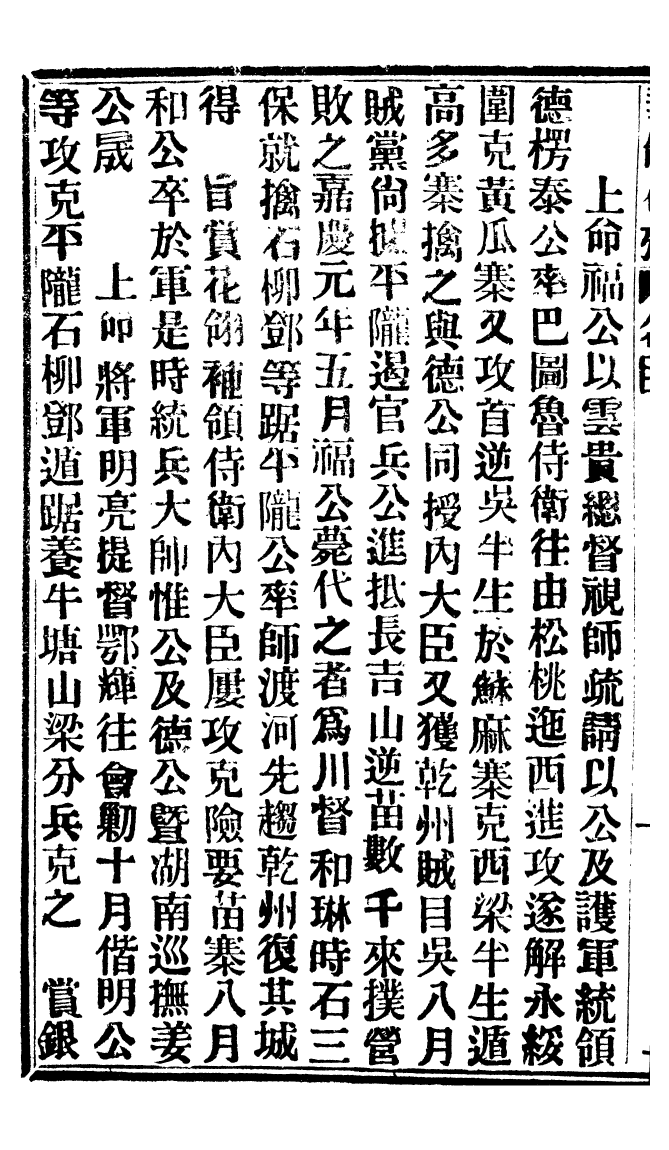 上命福公以雲貴總督視師疏請以公及護軍統領
德楞泰公率巴圖魯侍衛往由松桃迤西進攻遂解永綏
圍克黃瓜寨又攻首逆吳半生於蘇麻寨克西梁半生遁
高多寨擒之與德公同授內大臣又獲乾州賊目吳八月
賊黨尙據平隴遏官兵公進抵長吉山逆苗數千來撲營
敗之嘉慶元年五月福公薨代之者爲川督和琳時石三
保就擒石柳鄧等踞平隴公率師渡河先趨乾州復其城
得　旨賞花翎補領侍衛內大臣屢攻克險要苗寨八月
和公卒於軍是時統兵大帥惟公及德公曁湖南巡撫姜
公晟　上命將軍明亮提督鄂輝往會勦十月偕明公
等攻克平隴石柳鄧遁踞養牛塘山梁分兵克之　賞銀